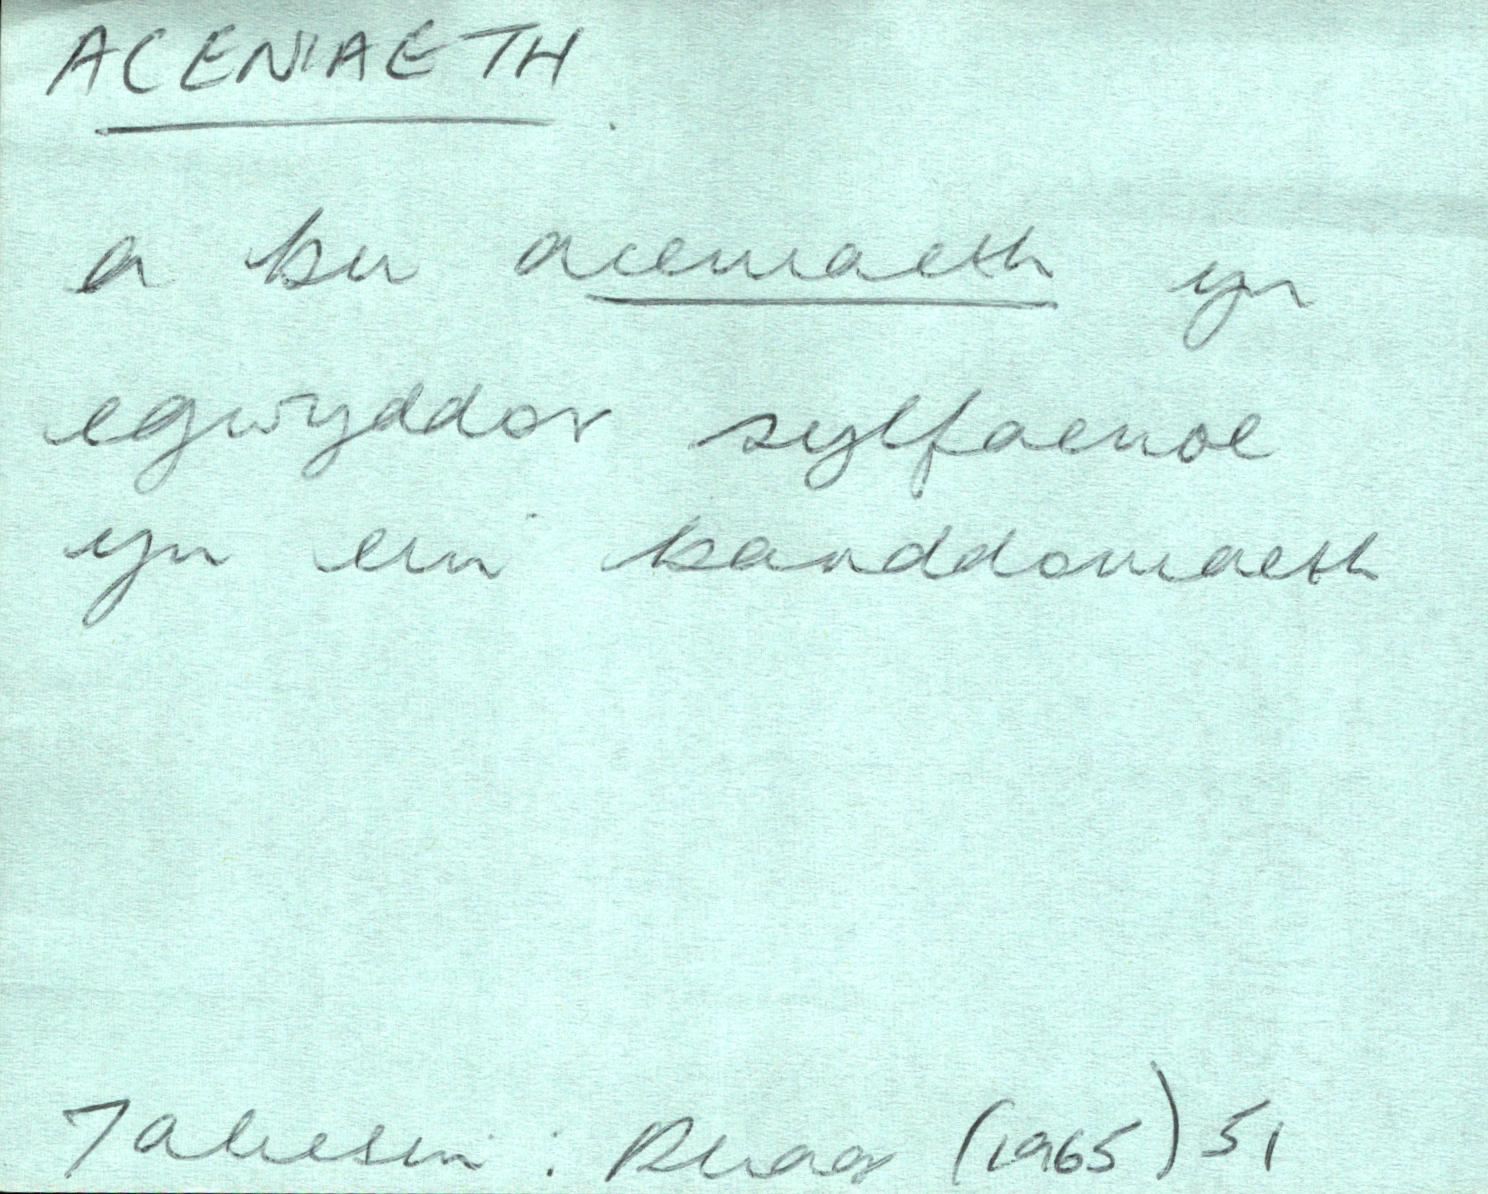 ACENIAETH.
a bu aceniaeth yn
egwyddor sylfaenol
yn ein barddoniaeth
Taliesin : Rhag (1965) 51